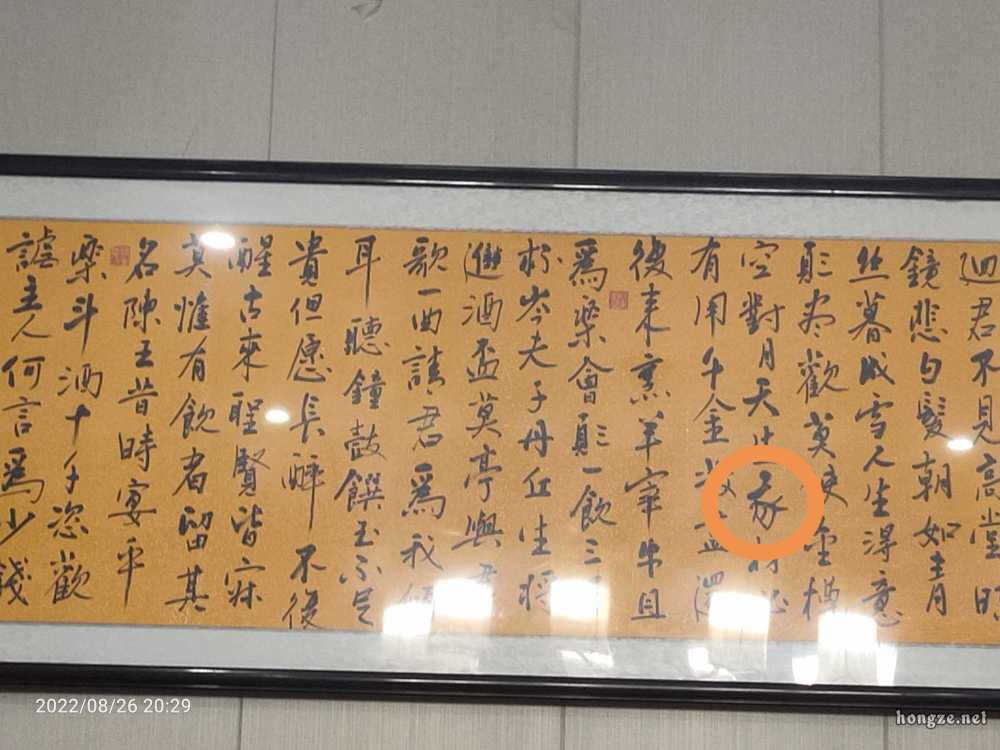 迴君不見高堂明
鏡悲白髮朝如青
丝暮成雪人生得意
須盡歡莫使金樽
空對月天生我材必
有用千金散盡還
復来烹羊宰牛且
爲樂會須一飲三百
杯岑夫子丹丘生將
進酒盃莫亭與君
歌一曲請君爲我傾
耳聽鐘鼓饌玉不足
貴但愿長醉不復
醒古來聖賢皆寂
莫惟有飲者留其
名陳王昔時宴平
樂斗酒十千恣歡
謔主人何言爲少錢
2022/08/26 20:29
hongze.net